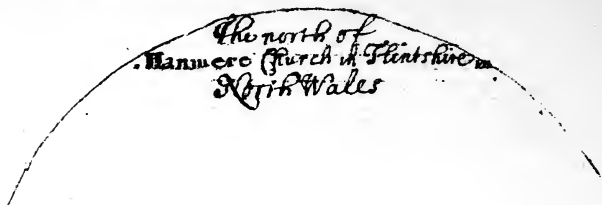 The north of
Hanmere Church in Flintshire in
North Wales